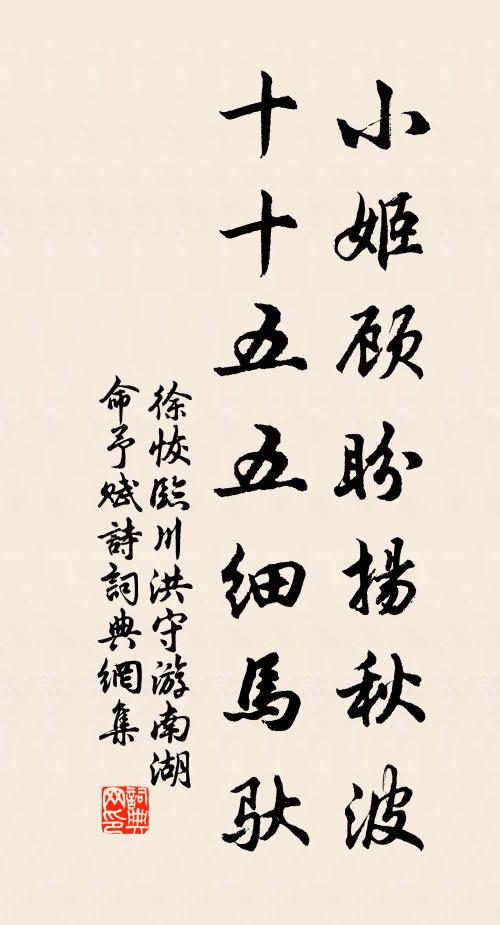 小姬顾盼揚秋波
十十五五细馬馱
徐恢臨川洪守游南湖
命予赋詩詞典網集
詞典
网印